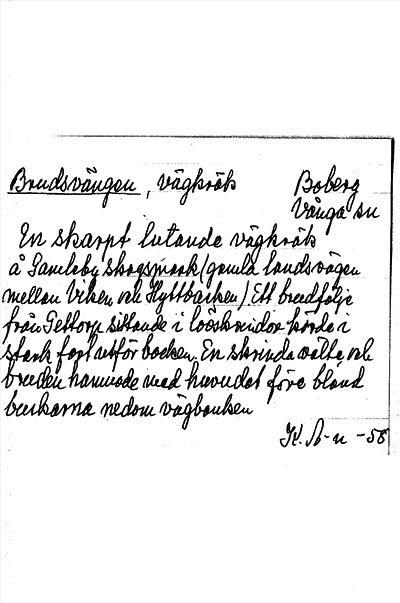 Brudsvängen, vägkrök
Boberg
Vånga sn
En skarpt lutande vägkrök
å Gamleby skogsmark (gamla landsvägen
mellan Viken och Hyttbacken). Ett brudfölje
från Gettorp sittande i lösskrindor körde i
stark fart utför backen. En skrinda välte och
bruden hamnade med huvudet före bland
buskarna nedom vägbanken
K. A-n -58